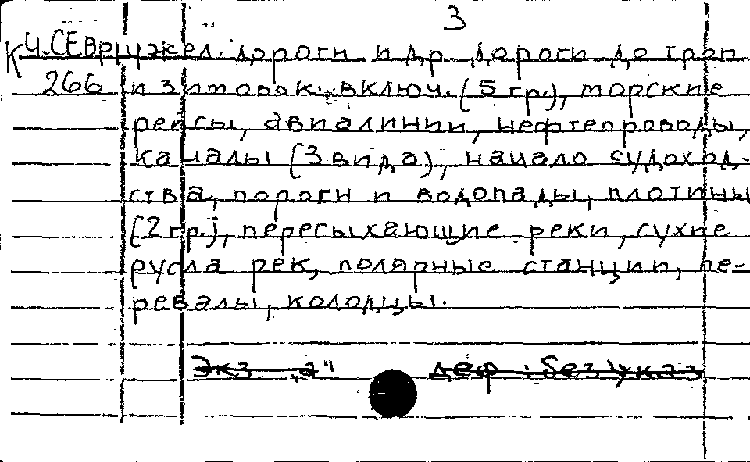 3
К Ч.СЕВР жел. дороги и др. дороги до троп
266 и зимовок включ. (5 гр.), морские
рейсы, авиалинии, нефтепроводы,
каналы (3 вида), начало судоход-
ства, пороги и водопады, плотины
(2 гр.), пересыхающие реки, сухие
русла рек, полярные станции, пе-
ревалы, колодцы.
Экз. „а" деф. без указ